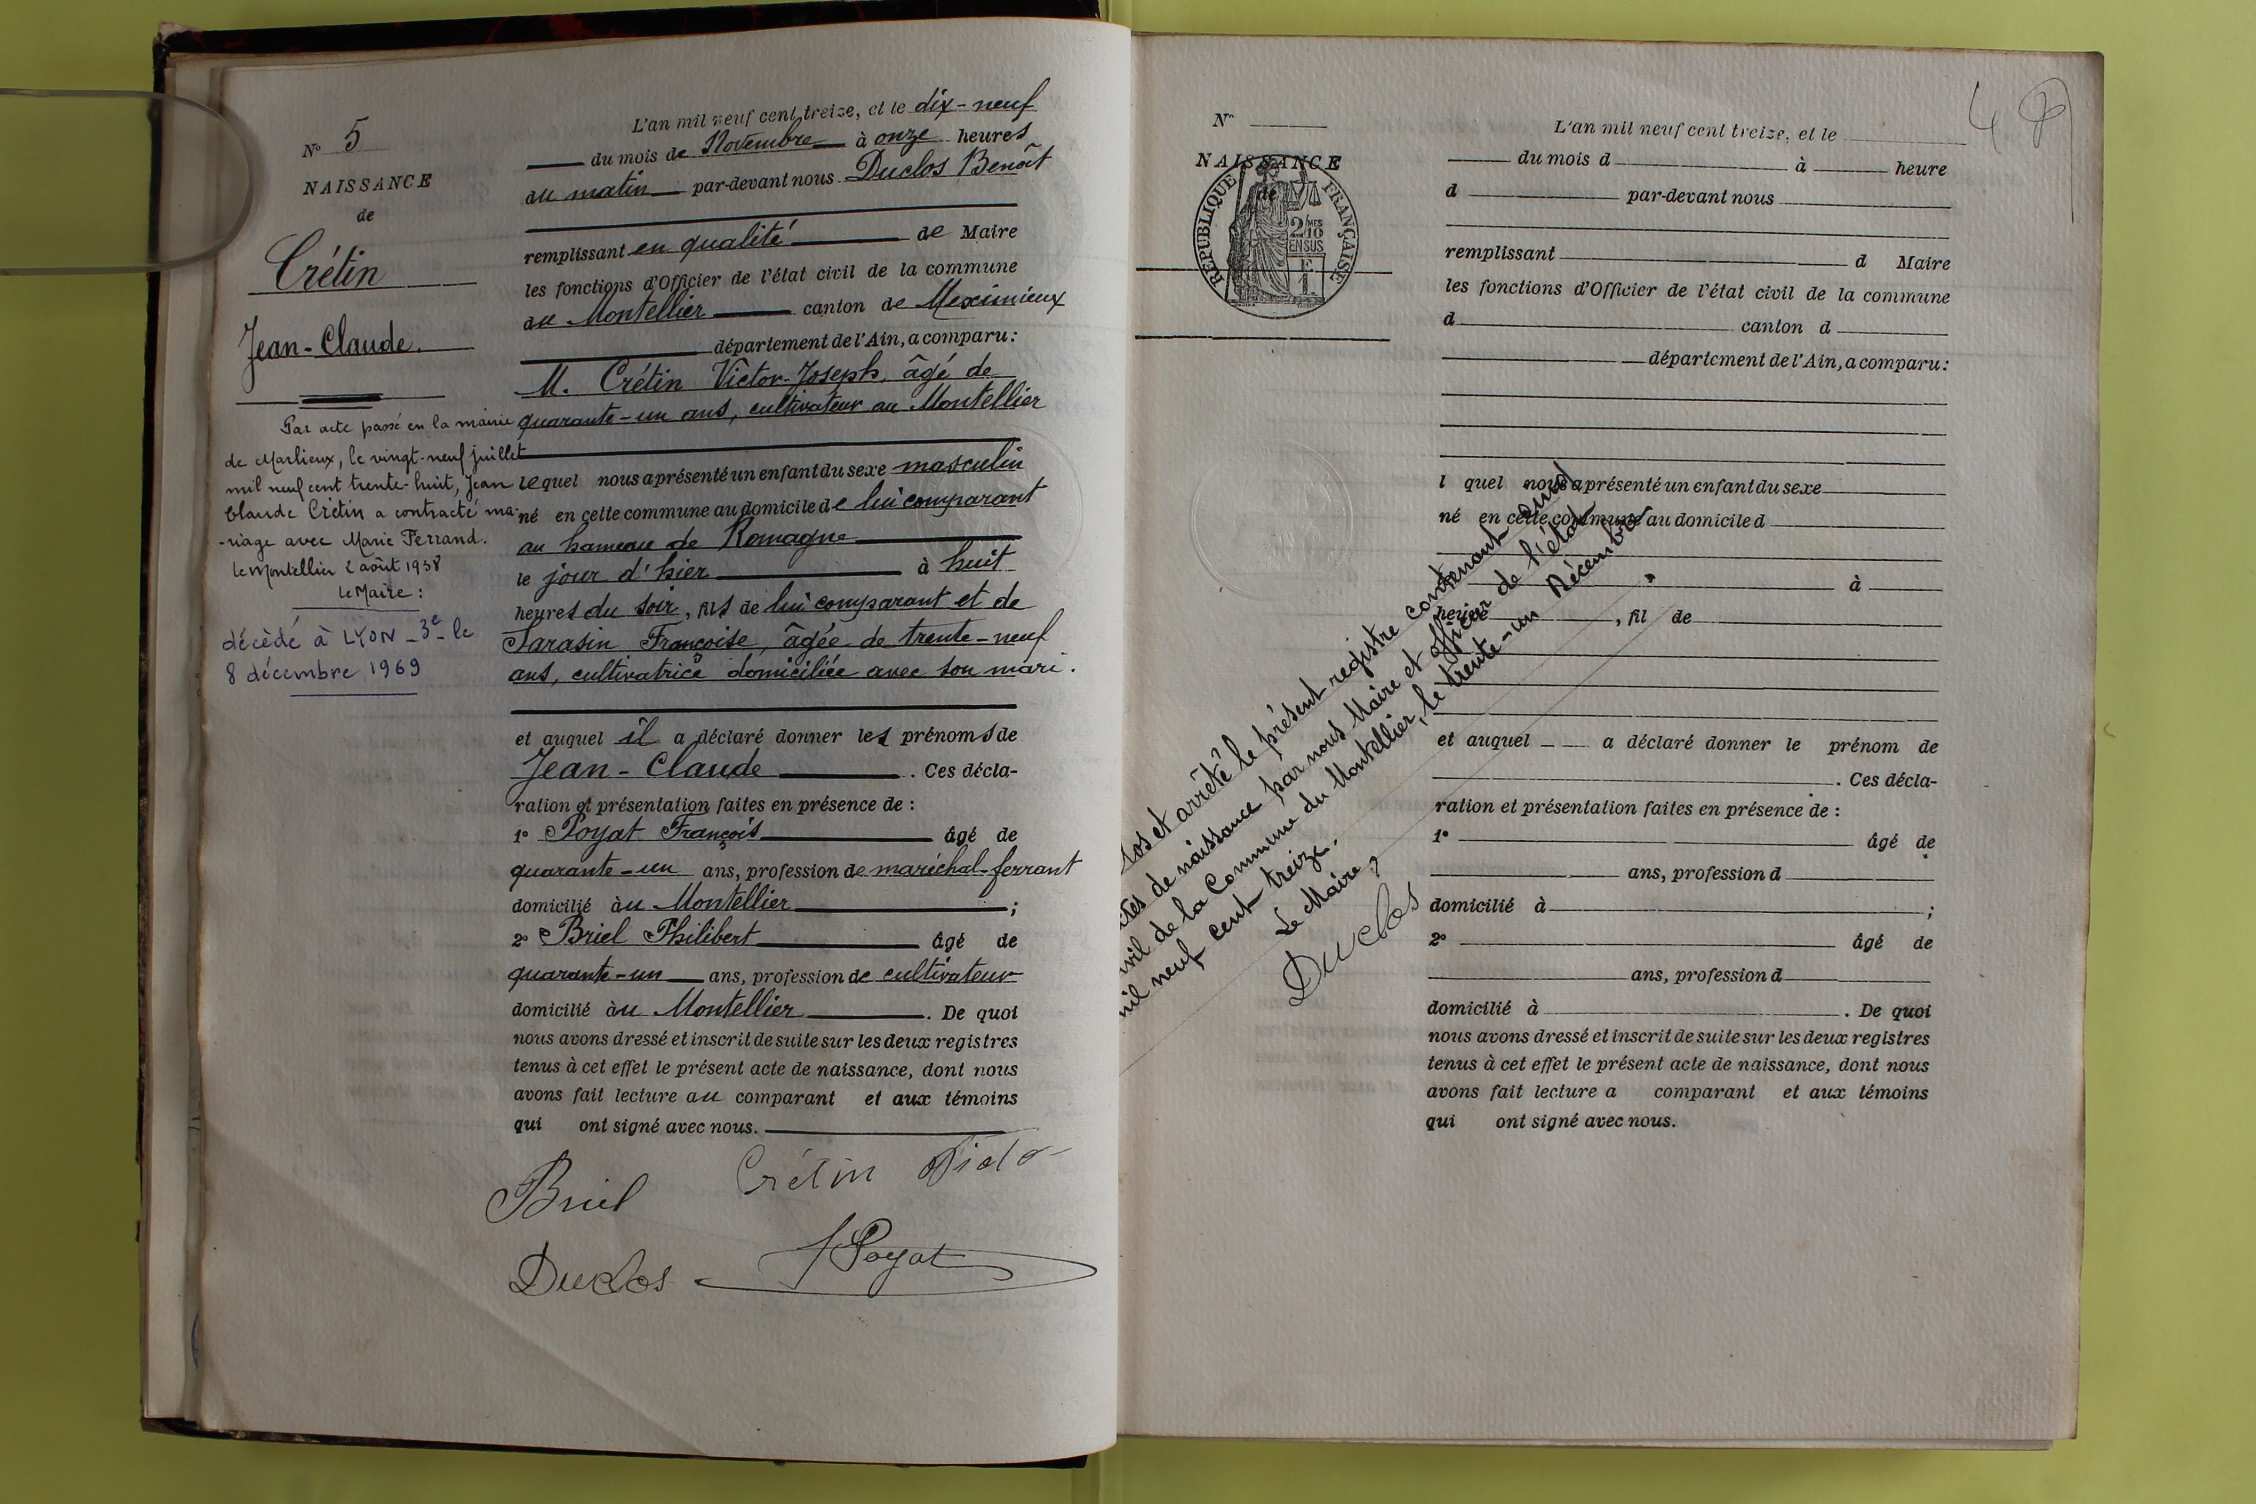 N° 5
NAISSANCE
de
Crétin
Jean-Claude.
Par acte passé en la mairie
de Marlieux, le vingt-neuf juillet
mil neuf cent trente-huit, Jean
Claude Crétin a contracté ma-
-riage avec Marie Ferrand.
Le Montellier 2 août 1938
Le Maire :
décèdé à LYON - 3e - le
8 décembre 1969
L'an mil neuf cent treize, et le dix-neuf
du mois de Novembre à onze heures
du matin par-devant nous Duclos Benoît
remplissant en qualité de Maire
les fonctions d'Officier de l'état civil de la commune
du Montellier canton de Meximieux
département de l'Ain, a comparu :
M. Crétin Victor-Joseph, âgé de
quarante-un ans, cultivateur au Montellier
lequel nous a présenté un enfant du sexe masculin
né en cette commune au domicile de lui comparant
au hameau de Romagne
le jour d'hier à huit
heures du soir, fils de lui comparant et de
Sarasin Françoise, âgée de trente-neuf
ans, cultivatrice domiciliée avec son mari.
et auquel il a déclaré donner les prénoms de
Jean-Claude . Ces décla-
ration et présentation faites en présence de :
1° Poyat François âgé de
quarante-un ans, profession de maréchal-ferrant
domicilié àu Montellier ;
2° Briel Philibert âgé de
quarante-un ans, profession de cultivateur
domicilié àu Montellier . De quoi
nous avons dressé et inscrit de suite sur les deux registres
tenus à cet effet le présent acte de naissance, dont nous
avons fait lecture au comparant et aux témoins
qui ont signé avec nous.
Briel Crétin
Duclos Poyat
4
N°
NAISSANCE
de
RÉPUBLIQUE FRANÇAISE
2/10MES
EN SUS
E
1
L'an mil neuf cent treize, et le
du mois d à heure
d par-devant nous
remplissant d Maire
les fonctions d'Officier de l'état civil de la commune
d canton d
département de l'Ain, a comparu :
l quel nous a présenté un enfant du sexe
né en cette commune au domicile d
à
heures , fil de
et auquel a déclaré donner le prénom de
. Ces décla-
ration et présentation faites en présence de :
1° âgé de
ans, profession d
domicilié à ;
2° âgé de
ans, profession d
domicilié à . De quoi
nous avons dressé et inscrit de suite sur les deux registres
tenus à cet effet le présent acte de naissance, dont nous
avons fait lecture a comparant et aux témoins
qui ont signé avec nous.
los et arrêté le présent registre contenant cinq
ctes de naissance par nous Maire et officier de l'état
ivil de la Commune du Montellier, le trente-un Décembre
mil neuf cent treize.
Le Maire,
Duclos